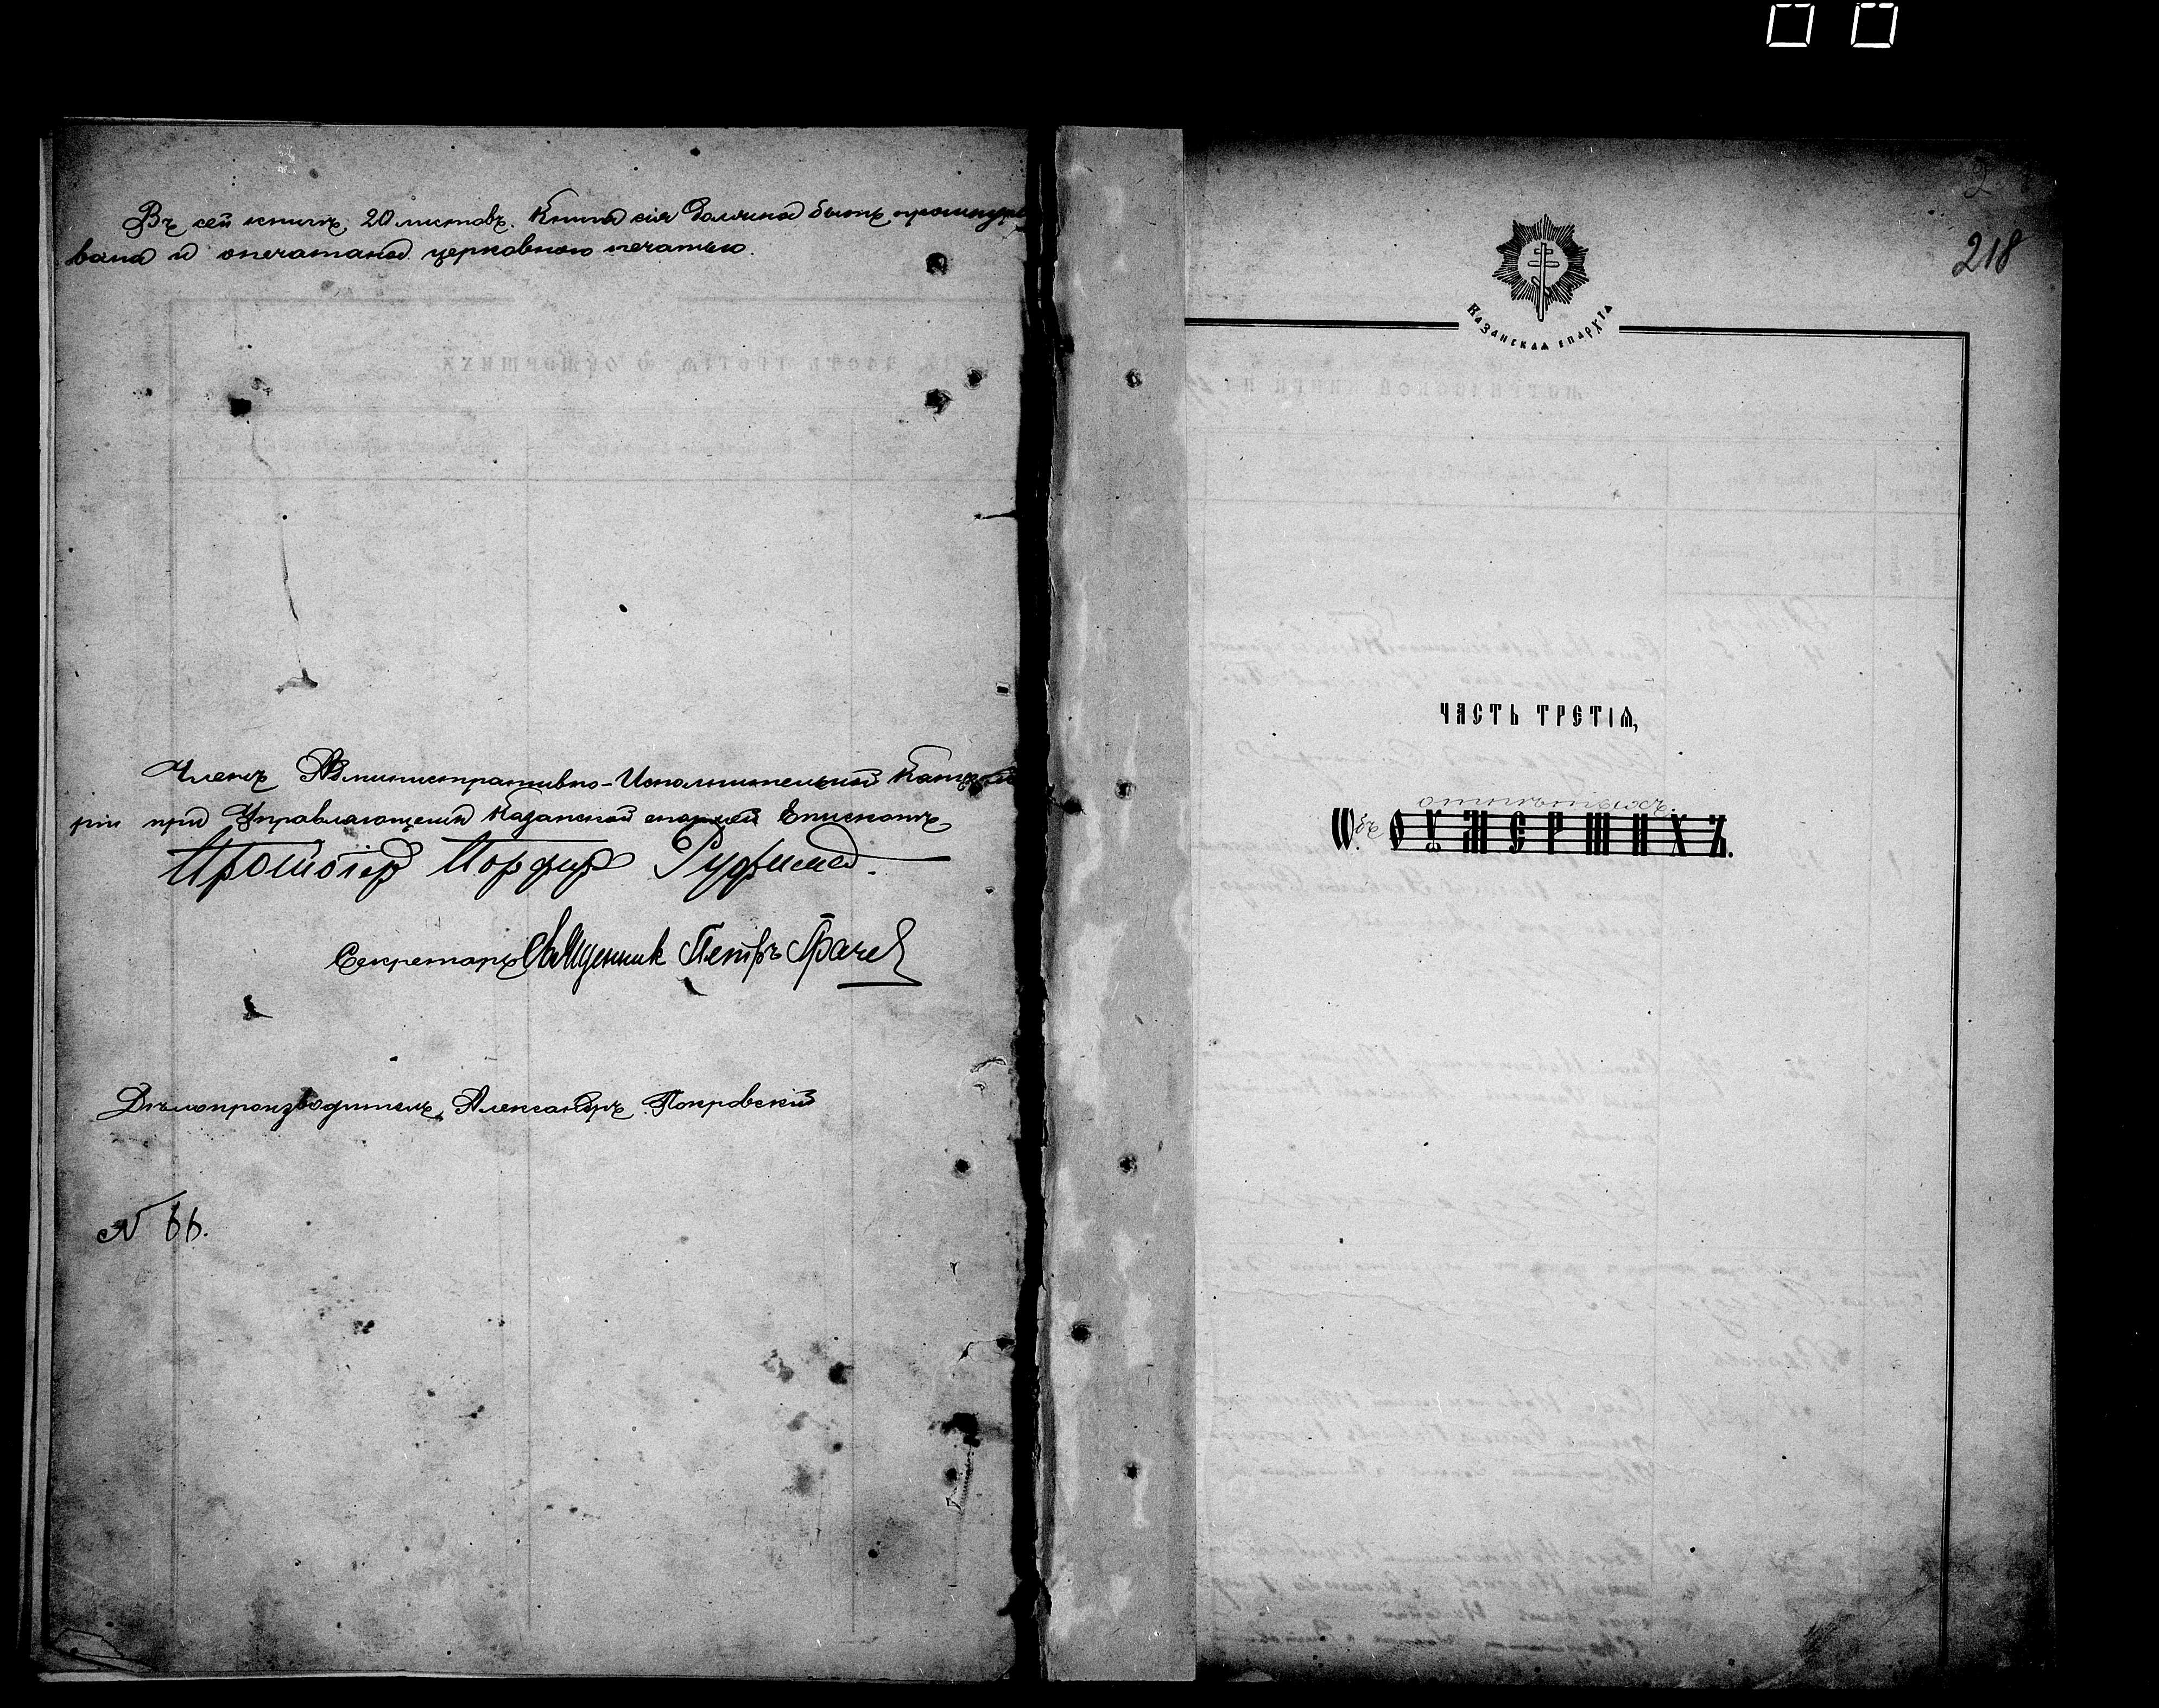 Въ сей книгѣ 20 листовъ. Книга сія должна быть прошнуро
вана и опечатана церковною печатью.
Членъ Административно-Исполнительной Канцеля
ріи при Управляющемъ Казанской епархіей Епископѣ
Протоіер Порфир Руфимс
Секретарь Священник Петръ Грачев
Дѣлопроизводитель Александръ Покровскій
N 66.
218
КАЗАНСКАѦ ЕПАРХІѦ
ЧАСТЬ ТРЕТІѦ,
отпѣтыхъ.
Ѡбъ ОУМЕРШИХЪ.